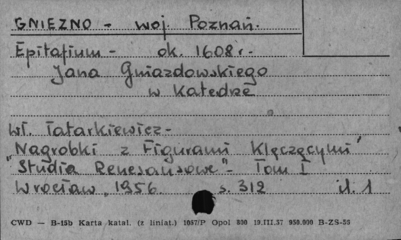 GNIEZNO - woj. Poznań.
Epitafium - ok. 1608 r.
Jana Gniazdowskiego
w Katedrze
Wł. Tatarkiewicz -
"Nagrobki z Figurami Klęczącymi"
"Studia Renesansowe" - Tom I
Wrocław, 1956 s. 312 il. 1
CWD — B-15b Karta katal. (z liniat.) 1057/P Opol 350 19.III.57 950.000 B-ZS-35